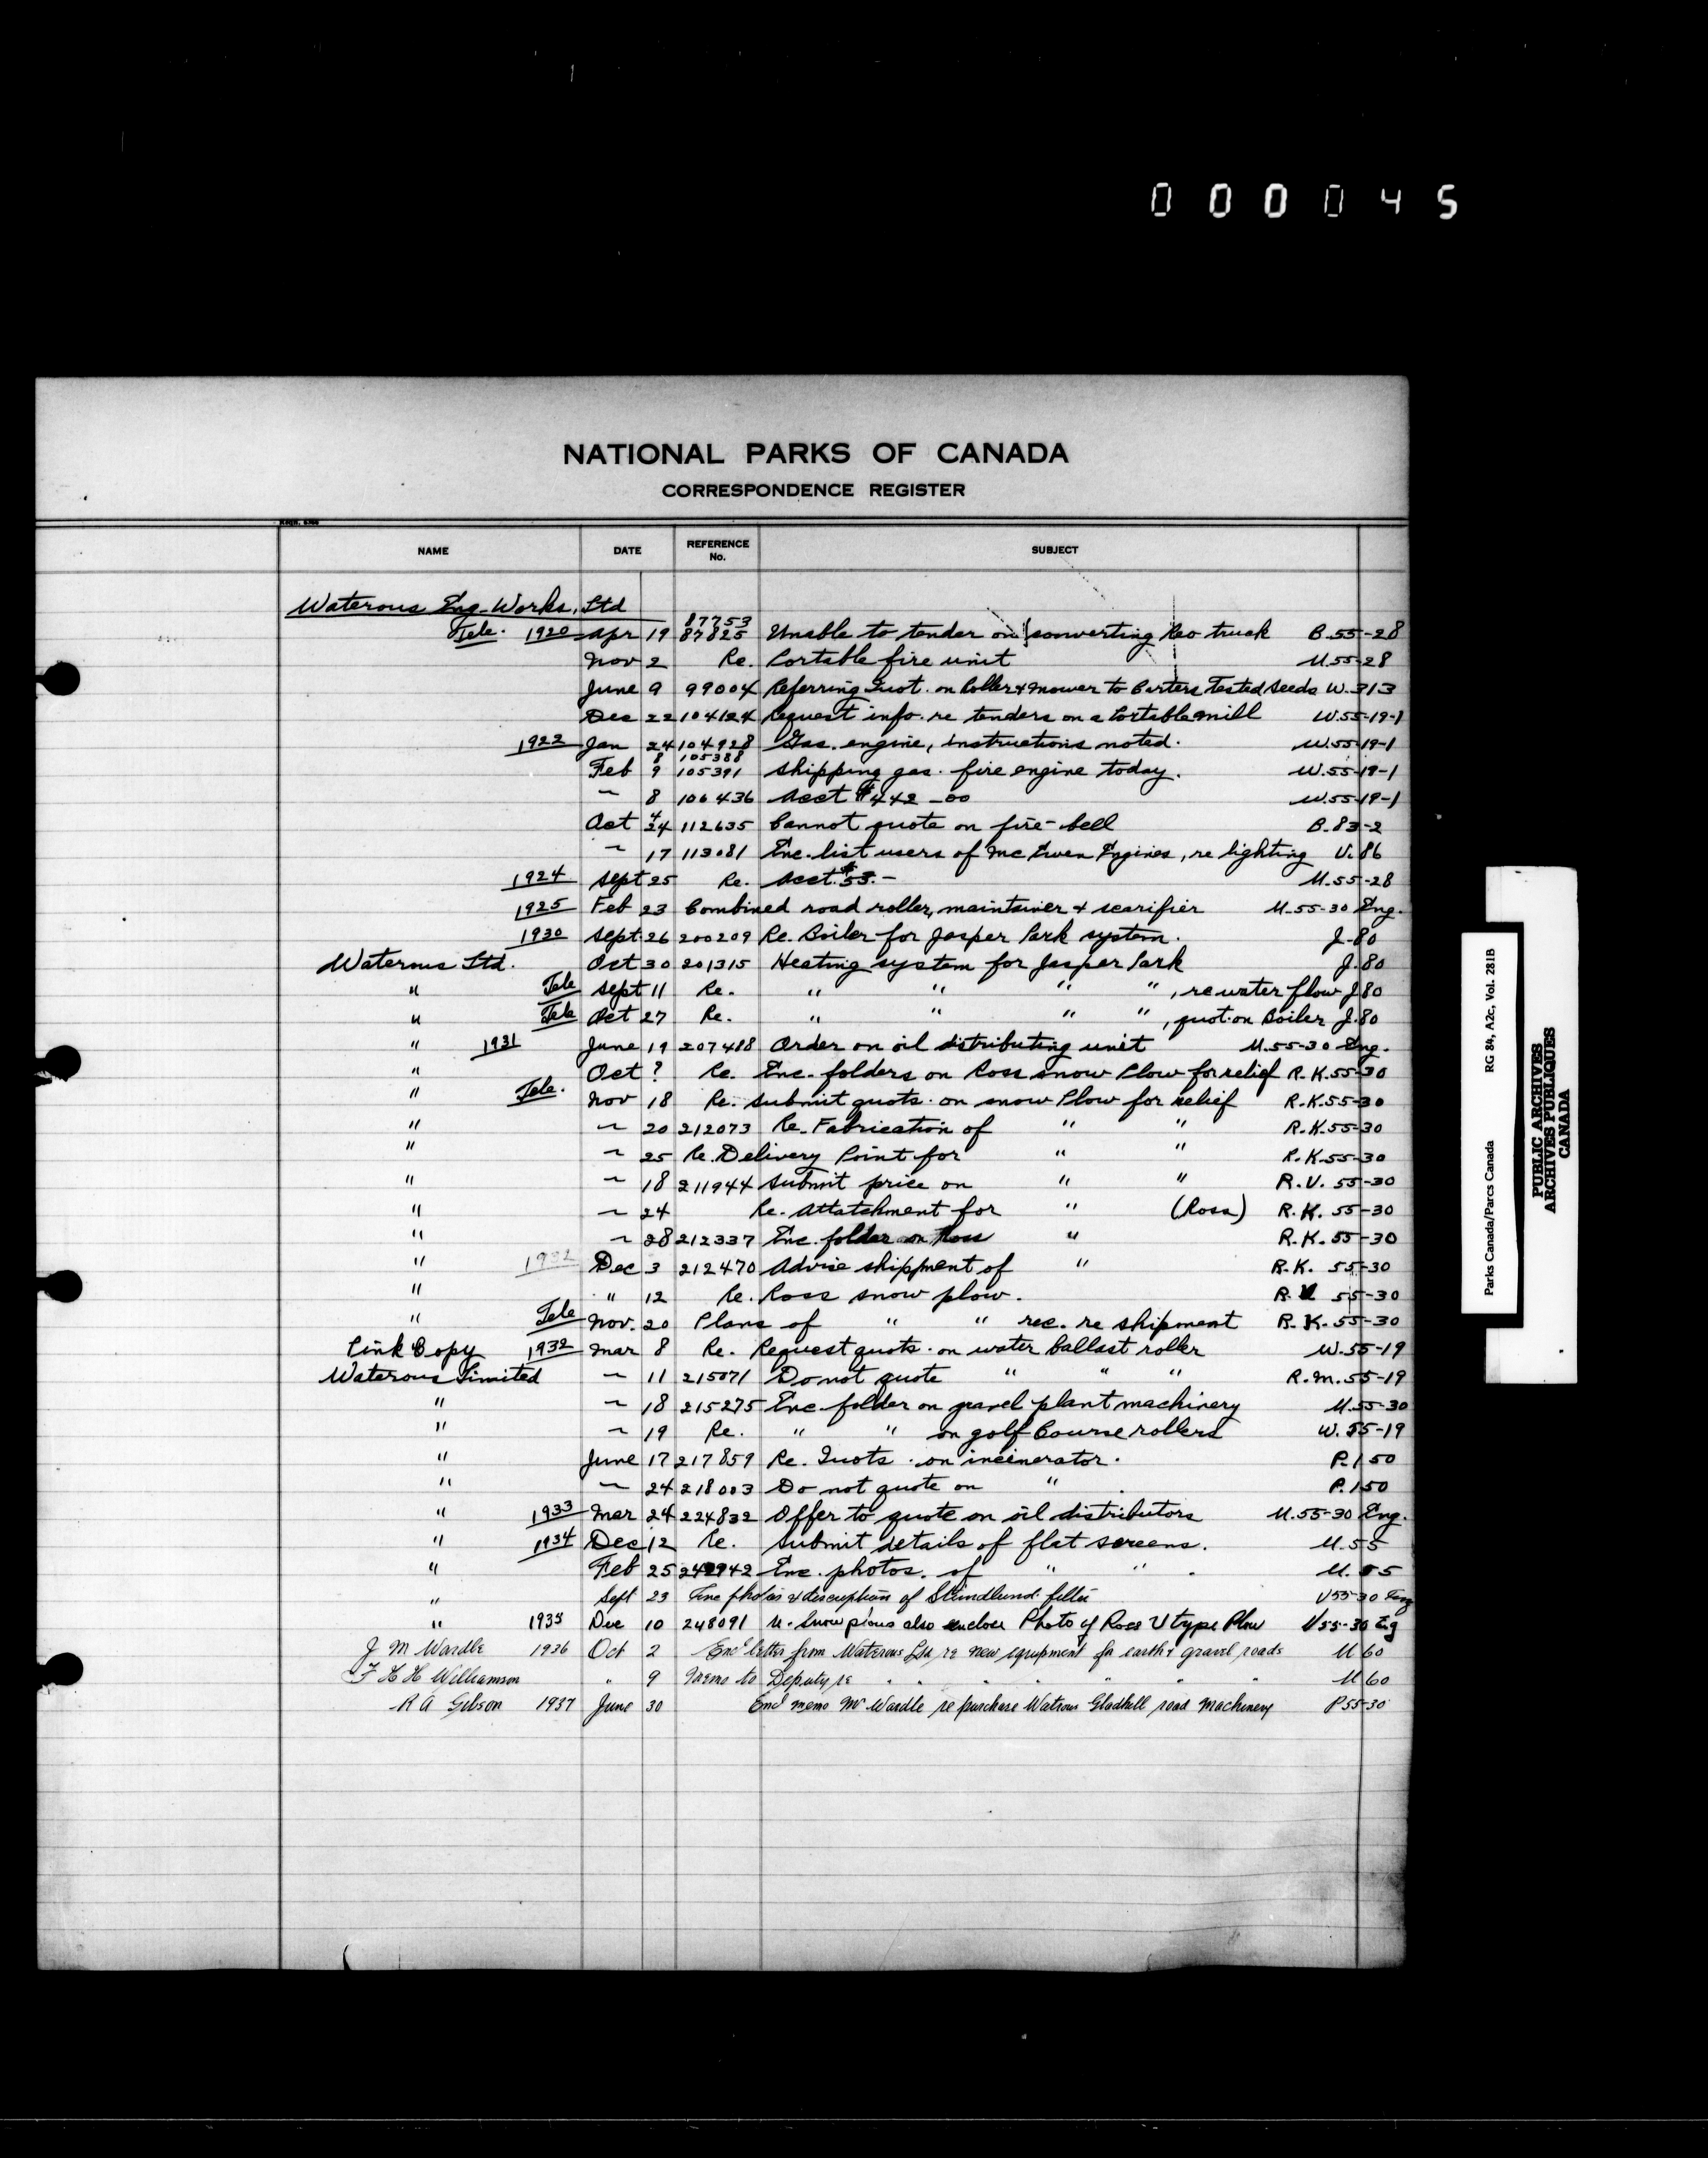 000045
NATIONAL PARKS OF CANADA
CORRESPONDENCE REGISTER
NAME DATE REFERENCE No. SUBJECT
Waterous Eng. Works, Ltd
87753
Tele. 1920 Apr 19 87825 Unable to tender on converting Reo truck B.55-28
Nov 2 Re. Portable fire unit U.55-28
June 9 99004 Referring Quot. on Roller & Mower to Carters Tested Seeds W.313
Dec 22 104124 Request info. re tenders on a Portable mill W.55-19-1
1922 Jan 24 104928 Gas. engine, instructions noted. W.55-19-1
8 105388
Feb 9 105391 Shipping gas. fire engine today. W.55-19-1
~ 8 106436 Acct $442-00 W.55-19-1
Oct 4 24 112635 Cannot quote on fire-bell B.83-2
~ 17 113081 Enc. list users of Mc Ewen Engines, re lighting U.86
1924 Sept 25 Re. Acct. $53.- U.55-28
1925 Feb 23 Combined road roller, maintainer & scarifier U.55-30 Eng.
1930 Sept. 26 200209 Re. Boiler for Jasper Park system. J.80
Waterous Ltd. Oct 30 201315 Heating system for Jasper Park J.80
" Tele Sept 11 Re. " " " " , re water flow J.80
" Tele Oct 27 Re. " " " " , quot. on Boiler J.80
" 1931 June 19 207418 Order on oil distributing unit U.55-30 Eng.
" Oct ? Re. Enc. folders on Ross snow Plow for relief R.K.55-30
" Tele. Nov 18 Re. Submit quots. on snow Plow for relief R.K.55-30
" ~ 20 212073 Re. Fabrication of " " R.K.55-30
" ~ 25 Re. Delivery Point for " " R.K.55-30
" ~ 18 211944 Submit price on " " R.V. 55-30
" ~ 24 Re. Attatchment for " (Ross) R.K. 55-30
" ~ 28 212337 Enc. folder on Ross " R.K. 55-30
" 1932 Dec 3 212470 Advise shippment of " R.K. 55-30
" " 12 Re. Ross snow plow. R. 55-30
" Tele Nov. 20 Plans of " " rec. re shipment R.K. 55-30
Pink Copy 1932 Mar 8 Re. Request quots. on water ballast roller W.55-19
Waterous Limited ~ 11 215071 Do not quote " " " R.M.55-19
" ~ 18 215275 Enc folder on gravel plant machinery U.55-30
" ~ 19 Re. " " on golf Course rollers W.55-19
" June 17 217859 Re. Quots. on incinerator. P.150
" ~ 24 218003 Do not quote on " . P.150
" 1933 Mar 24 224832 Offer to quote on oil distributors U.55-30 Eng.
" 1934 Dec 12 Re. Submit details of flat screens. U.55
" Feb 25 242942 Enc. photos. of " " . U.55
" Sept 23 Enc photos & description of filler U55-30 Eng
" 1935 Dec 10 248091 re. Snow plows also encloses Photo of Ross V type Plow U55-30 Eng
J. M. Wardle 1936 Oct 2 Encl letter from Waterous Ltd re new equipment for earth & gravel roads U 60
F H H Williamson " 9 Memo to Deputy re " " " " " " U 60
R A Gibson 1937 June 30 Encl memo Mr Wardle re purchase Watrous Gladhill road machinery P55-30
Parks Canada/Parcs Canada RG 84, A2c, Vol. 281B
PUBLIC ARCHIVES
ARCHIVES PUBLIQUES
CANADA